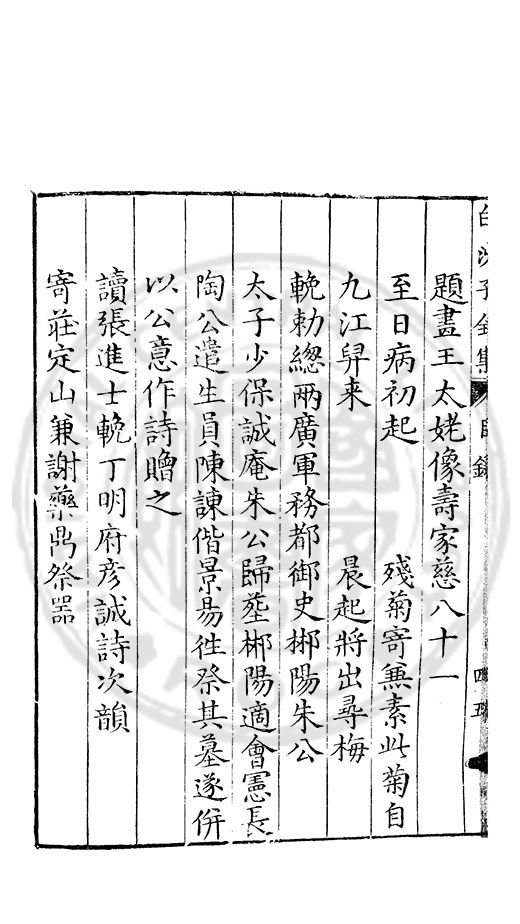 白沙子全集 目錄 四
題畫王太姥像壽家慈八十一
至日病初起 殘菊寄兼素此菊自
九江舁来 晨起將出尋梅
輓勅總兩廣軍務都御史郴陽朱公
太子少保誠庵朱公歸塟郴陽適會憲長
陶公遣生員陳諫偕景昜徃祭其墓遂併
以公意作詩贈之
讀張進士輓丁明府彥誠詩次韻
寄莊定山兼謝藥鼎祭器